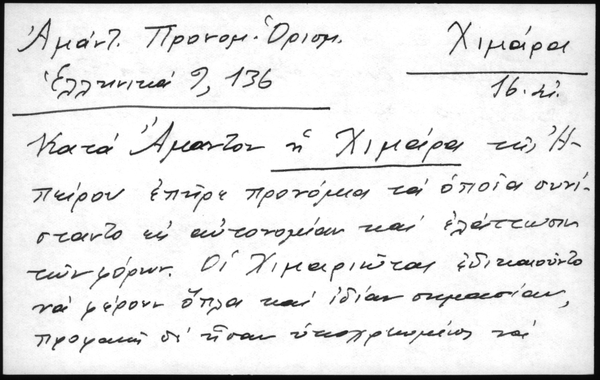 Ἀμάντ. Προνομ. Ὁρισμ.
Χιμάρα
Ἑλληνικά 9, 136
16. αἰ.
Κατά Ἄμαντον ἡ Χιμάρα τῆς Ἠ-
πείρου ἐπῆρε προνόμια τά ὁποῖα συνί-
σταντο εἰς αὐτονομίαν καί ἐλάττωσιν
τῶν φόρων. Οἱ Χιμαριῶται ἐδικαιοῦντο
νά φέρουν ὅπλα καί ἰδίαν σημαίαν,
προφανῶς δέ ἦσαν ὑποχρεωμένοι νά